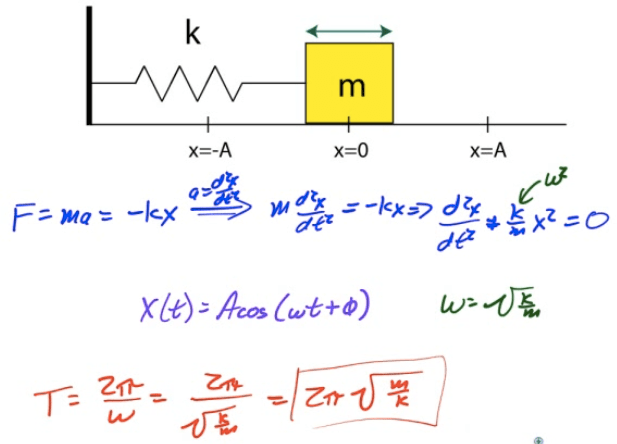 k
m
x=-A x=0 x=A
F = ma = -kx a=d²x/dt² ⟹ m d²x/dt² = -kx => d²x/dt² + k/m x² = 0 ω²
x(t) = Acos(ωt+φ) ω=√k/m
T = 2π/ω = 2π/√k/m = 2π√m/k